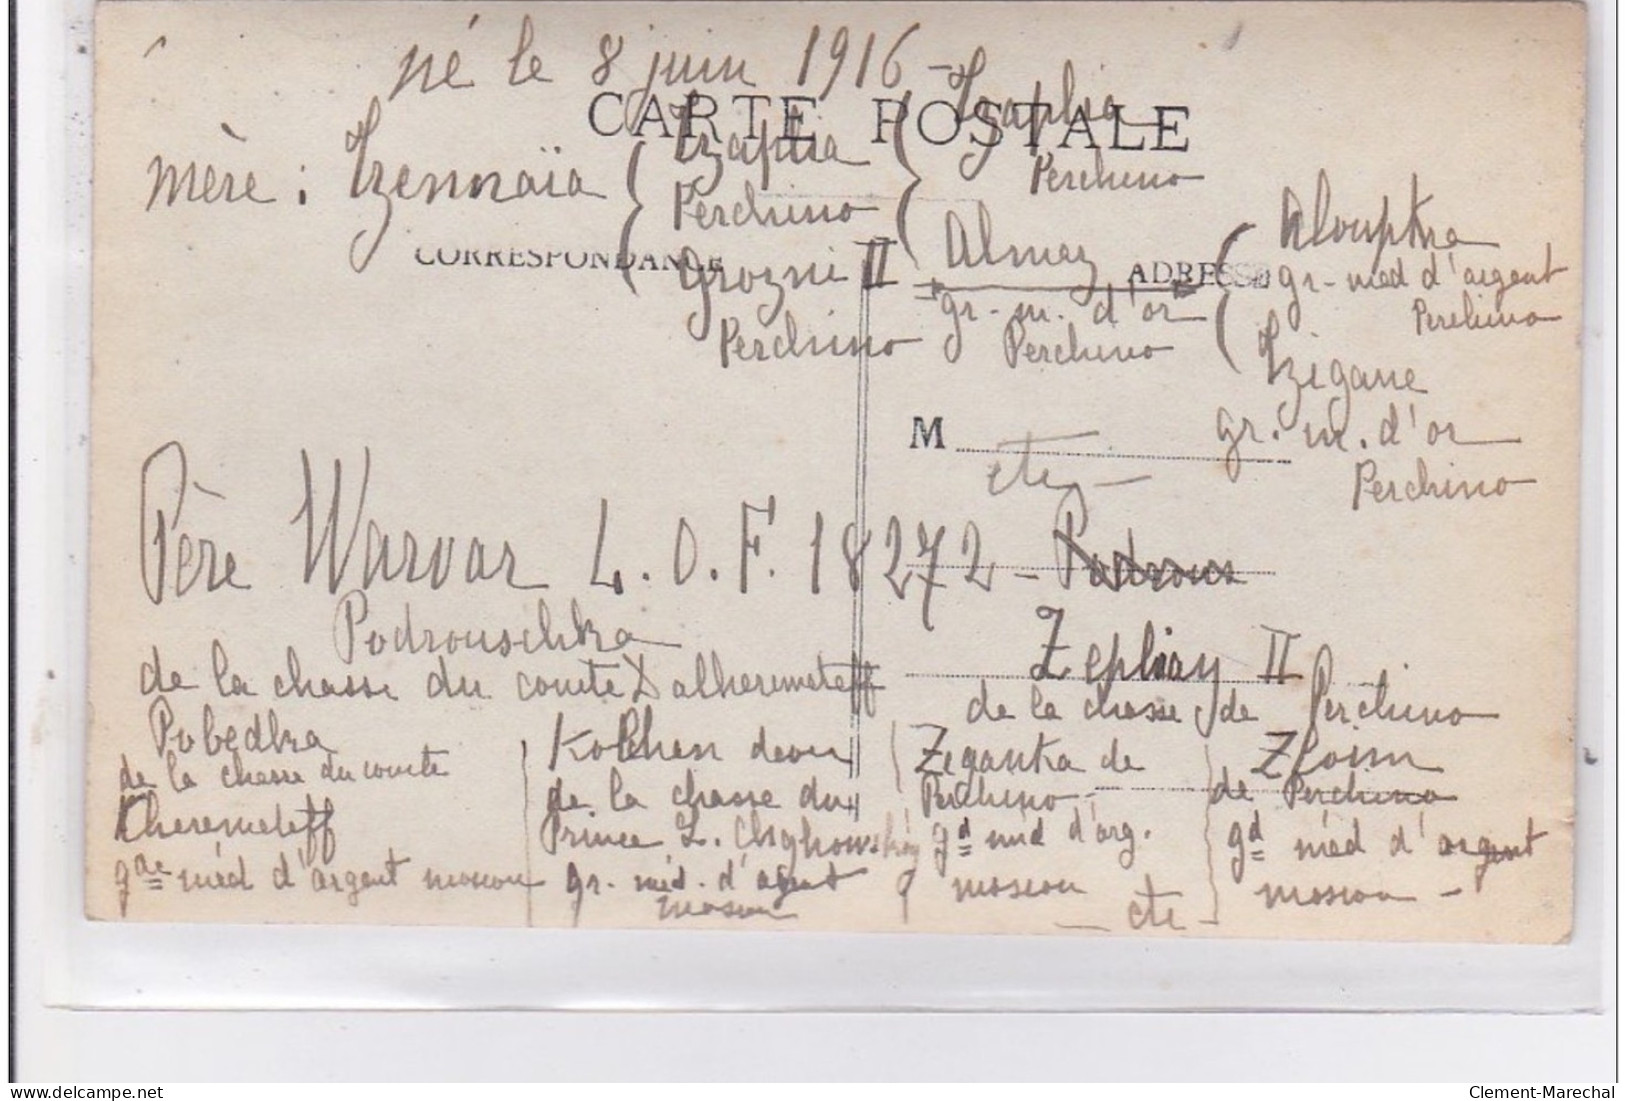 né le 8 juin 1916 -
CARTE POSTALE
mère : Tzennaïa
Tzaplia
Perchino
Tzaplia
Perchino
CORRESPONDANCE
ADRESSE
Grozni II
Perchino
Almaz
gr - m. d'or
Perchino
Aloupka
gr - méd d'argent
Perchino
Tzigane
gr. m. d'or
Perchino
M
etc -
Père Warvar L.O.F. 18272 -
Podrouschka
de la chasse du comte
Zephay II
de la chasse de Perchino
Pobedka
de la chasse du comte
Cheremeteff
gde méd d'argent moscou
de la chasse du
Prince
gr. méd. d'agent
moscou
Ziganka de
Perchino -
gd méd d'arg.
moscou
Zloim
de Perchino
gd méd d'argent
moscou -
- etc -
delcampe.net
Clement-Marechal